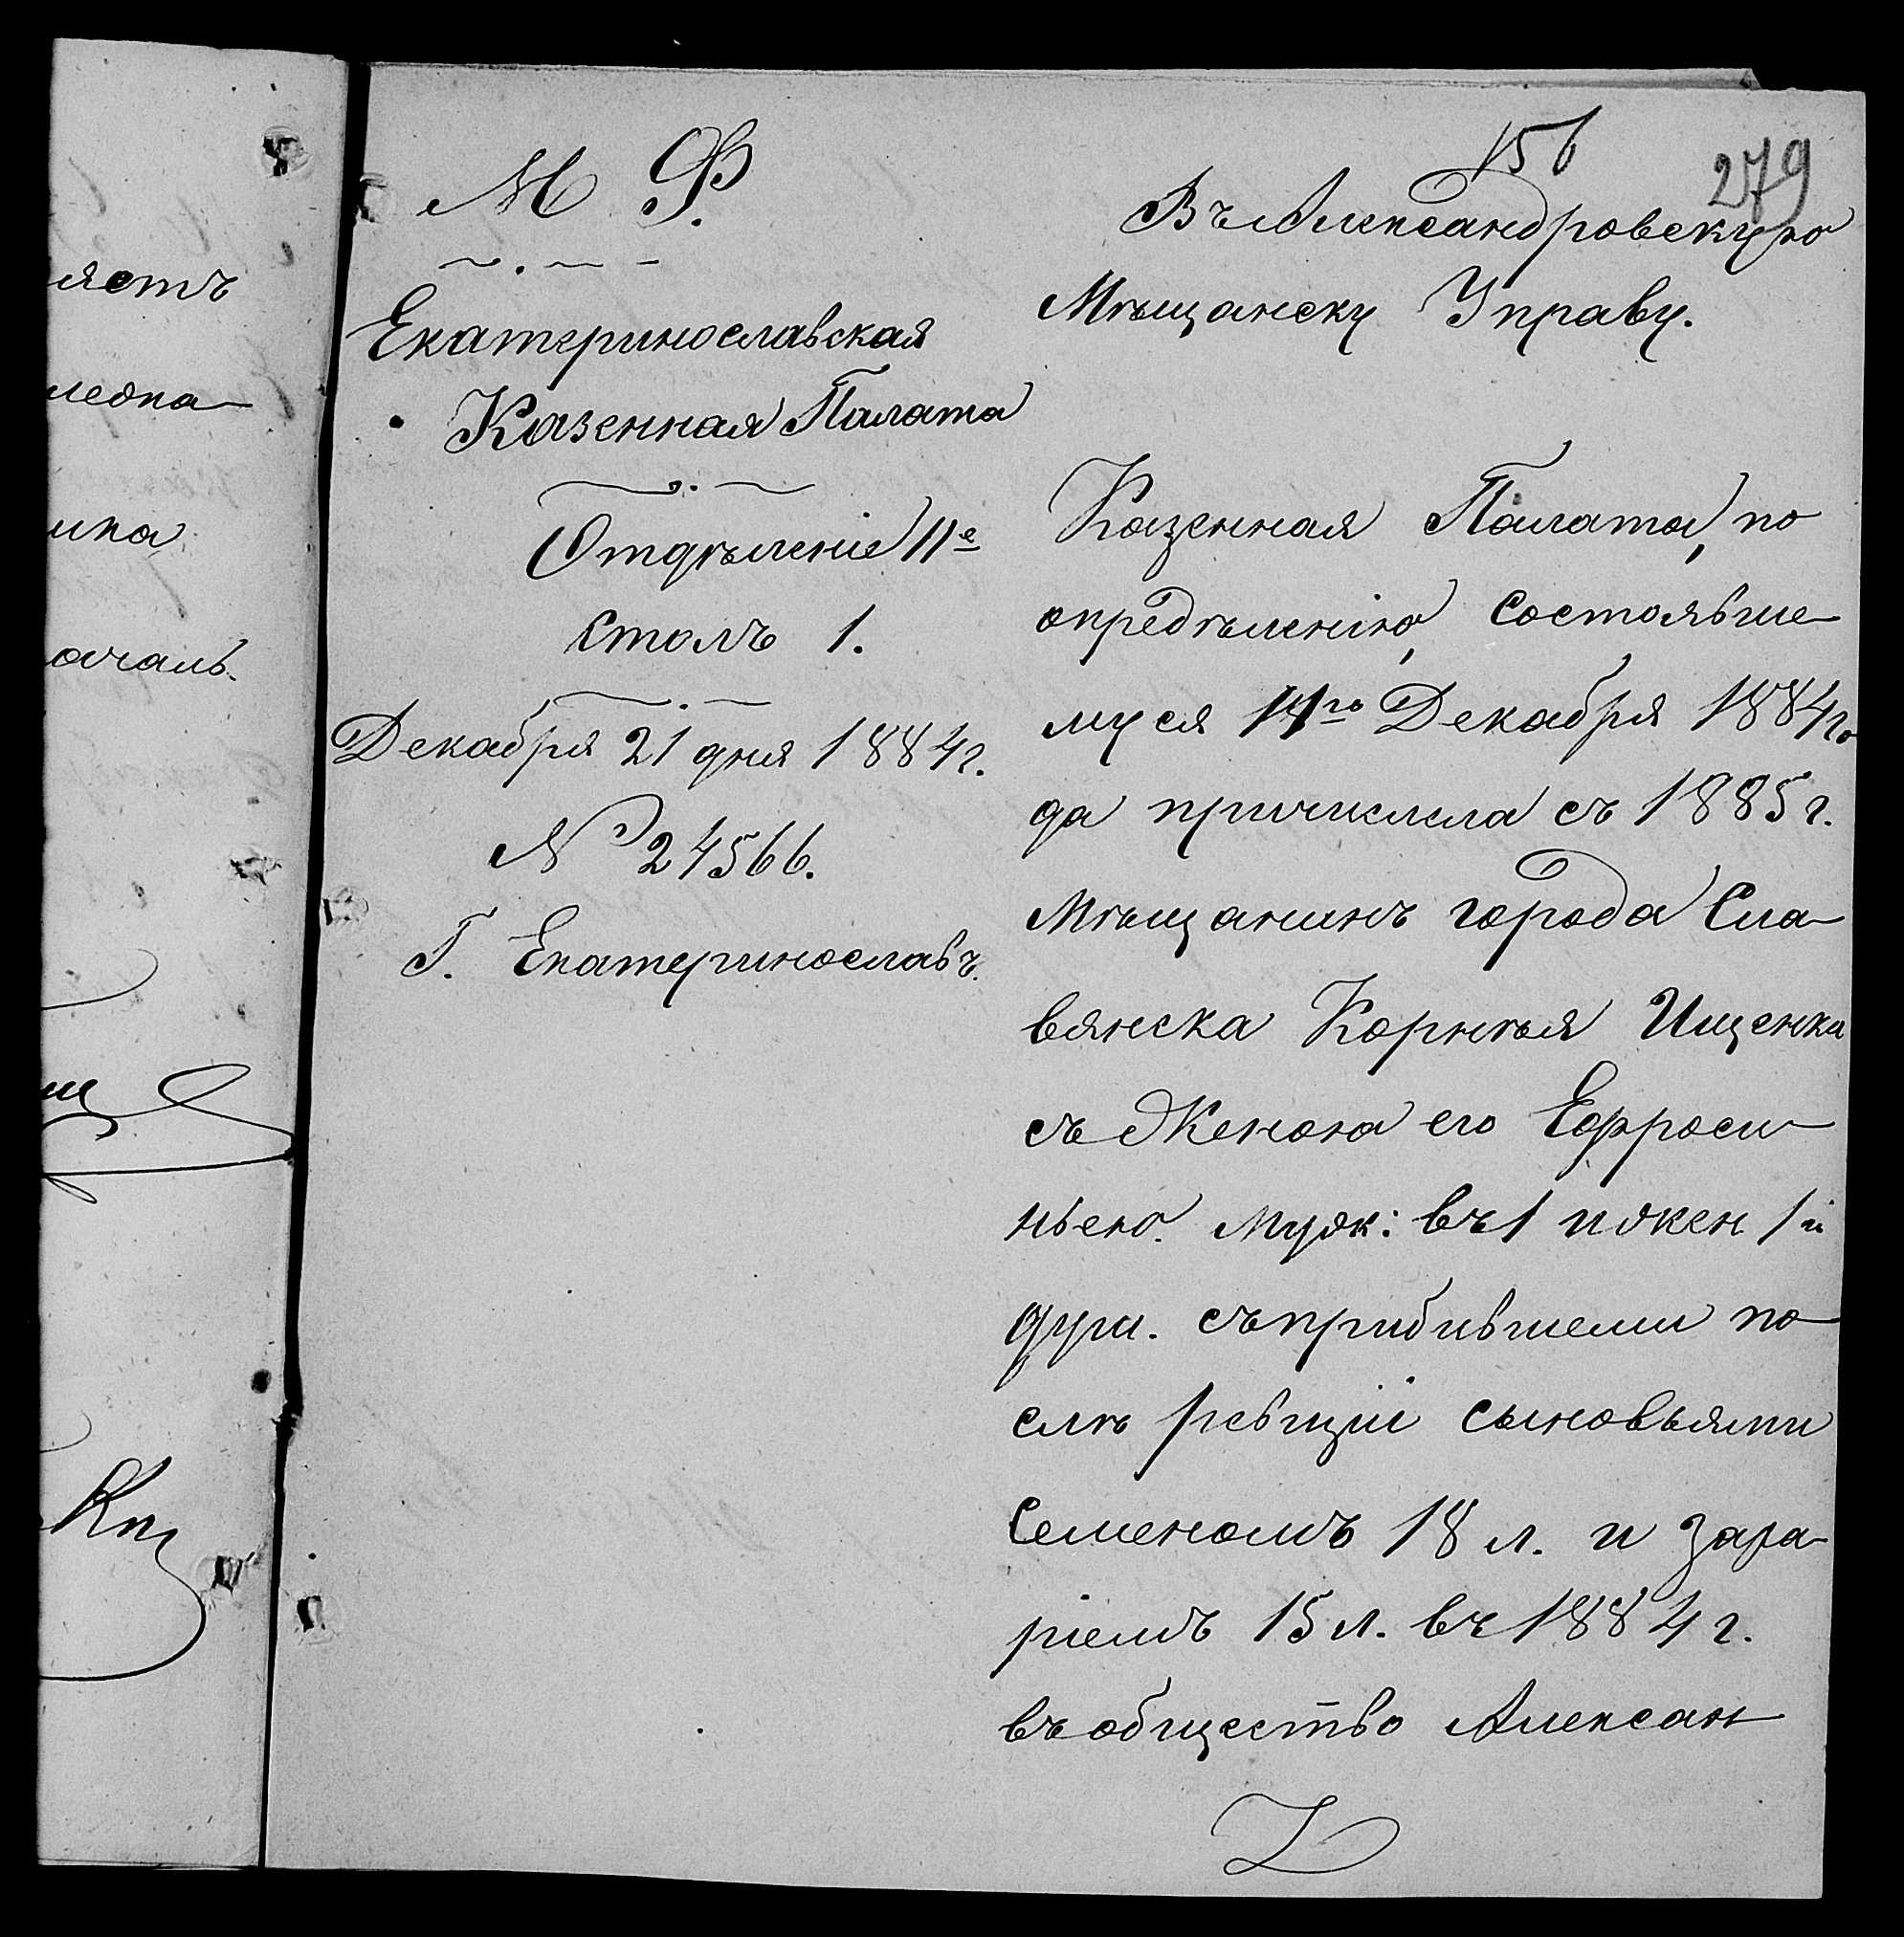 156
279
М Ф.
Екатеринославская
Казенная Палата
Отдѣленіе II е
столъ 1.
Декабря 21 дня 1884 г.
№ 24566.
Г. Екатеринославъ.
Въ Александровскую
Мѣщанску Управу.
Казенная Палата, по
опредѣленію, состоявше
муся 14го Декабря 1884 го
да причислила съ 1885 г.
мѣщанинъ города Сла
вянска Корнѣя Ищенка
съ Женою его Ефроси
ньею. муж: въ 1 и жен 1 й
душ. съ прибившеми по
слѣ ревизіи сыновьями
Семеномъ 18 л. и Заха
ріемъ 15 л. въ 1884 г.
въ общество Алексан
яетъ
ика
ачаль.